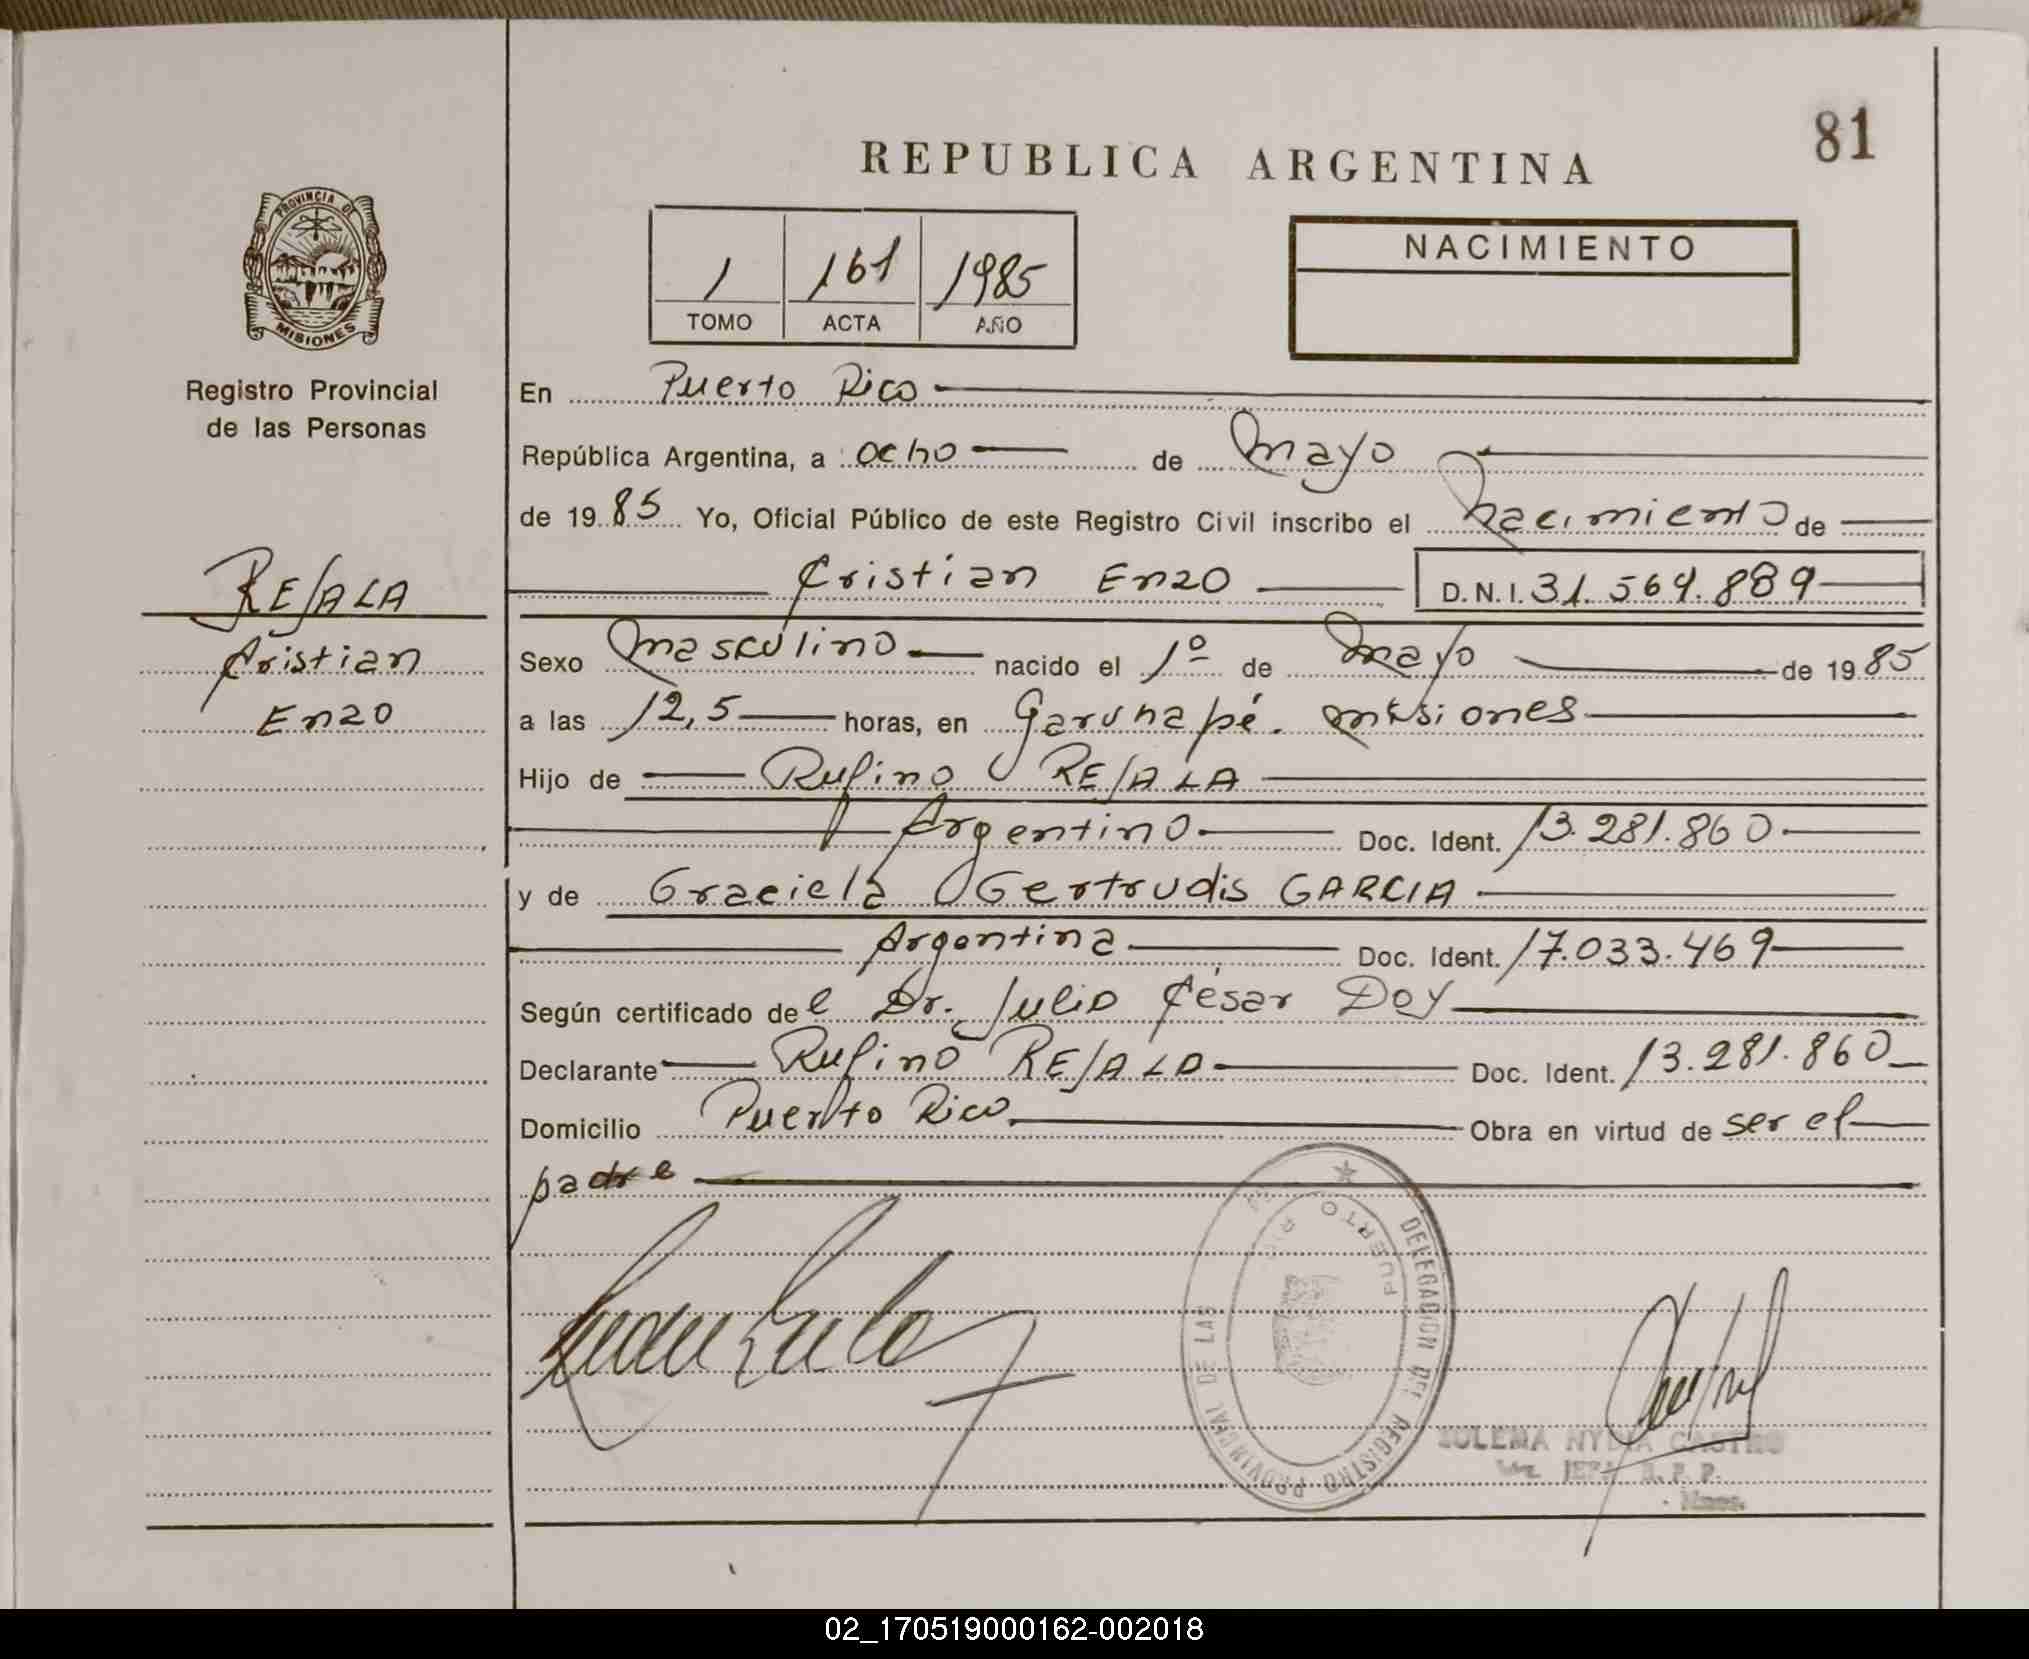 81
REPUBLICA ARGENTINA
PROVINCIA DE
MISIONES
Registro Provincial
de las Personas
1 161 1985
TOMO ACTA AÑO
NACIMIENTO
En Puerto Rico
República Argentina, a ocho de Mayo
de 1985 Yo, Oficial Público de este Registro Civil inscribo el Nacimiento de
Cristian Enzo D.N.I. 31.564.889
REJALA
Cristian
Enzo
Sexo Masculino nacido el 1º de Mayo de 1985
a las 12,5 horas, en Garuhapé. Misiones
Hijo de Rufino REJALA
Argentino Doc. Ident. 13.281.860
y de Graciela Gertrudis GARCIA
Argentina Doc. Ident. 17.033.469
Según certificado del Dr. Julio César Doy
Declarante Rufino REJALA Doc. Ident. 13.281.860
Domicilio Puerto Rico Obra en virtud de ser el
padre
DELEGACION DEL REGISTRO PROVINCIAL DE LAS
PUERTO RICO
ZULEMA NYDIA CASTRO
JEFA R. P. P.
02_170519000162-002018